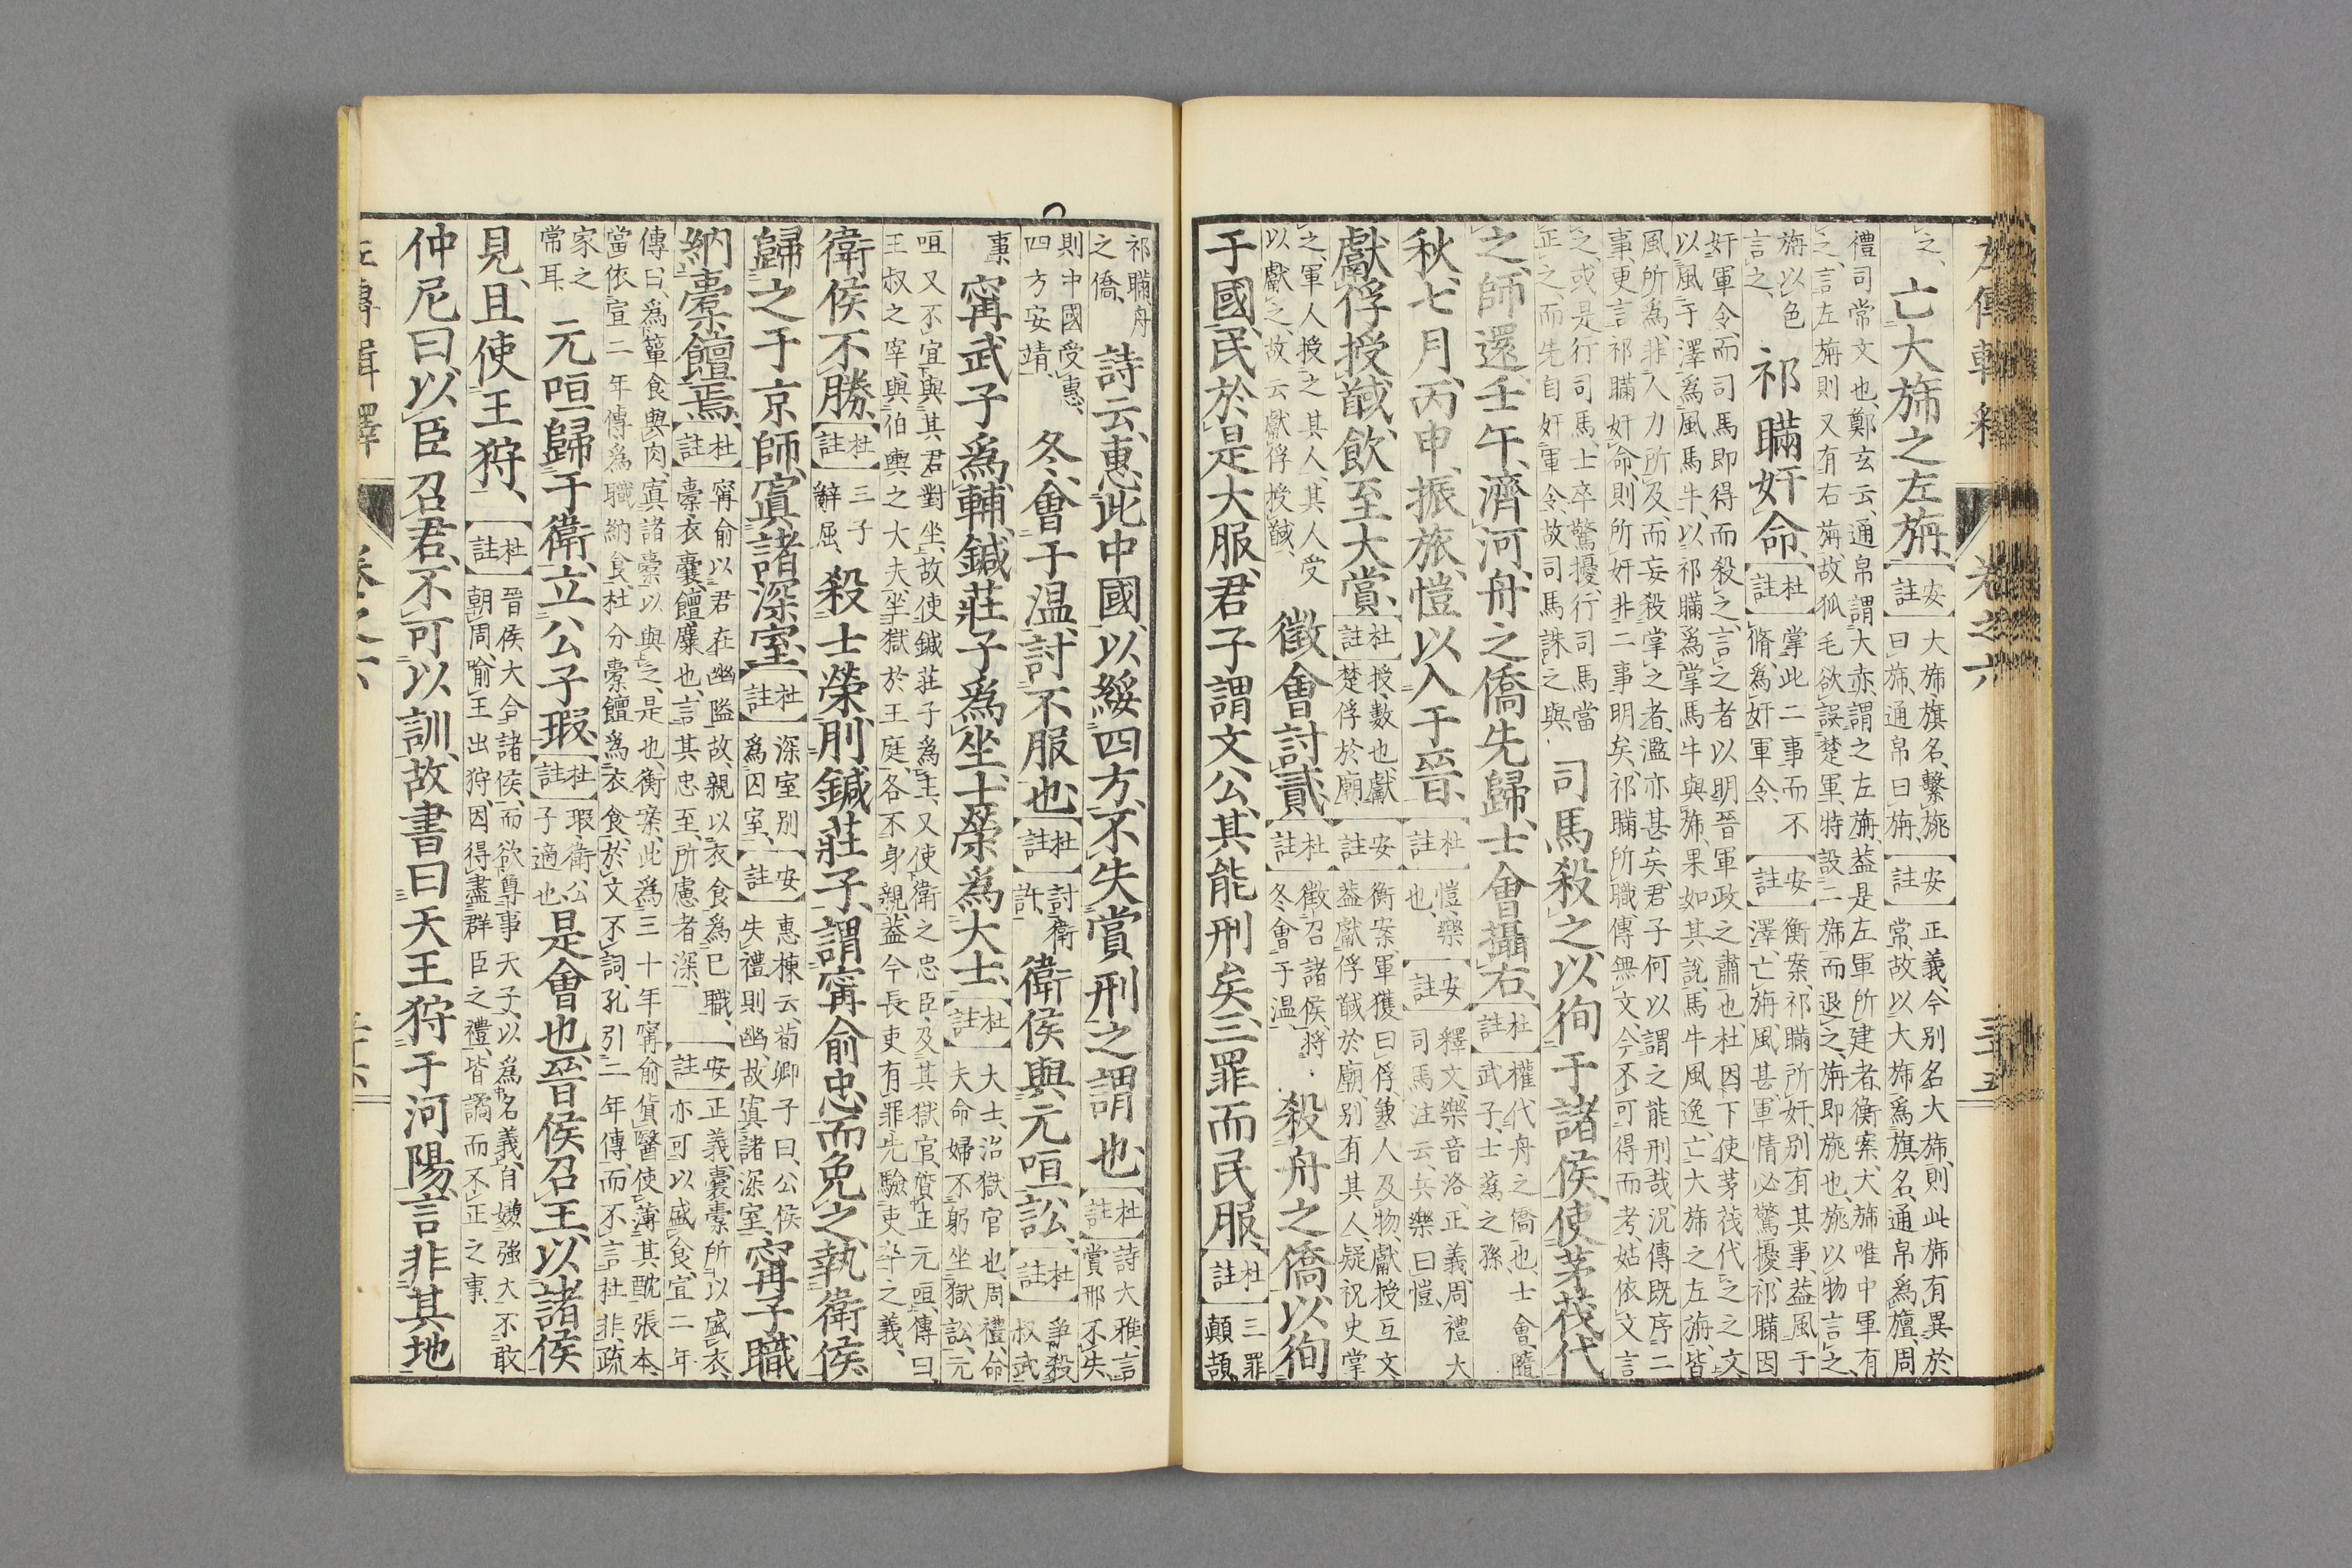 左傳輯釋 卷之六 三十五
之、亡大旆之左旃、【安註】大旆、旗名、繫旐曰旆、通帛曰旃、【安註】正義、今別名大旆、則此旆有異於常、故以大旆爲旗名、通帛爲旜、周
禮司常文也、鄭玄云、通帛謂大赤、謂之左旃、蓋是左軍所建者、衡案、大旆唯中軍有
之、言左旃則又有右旃、故狐毛欲誤楚軍、特設二旆而退之、旃即旐也、旐以物言之、
旃以色言之、祁瞞奸命、【杜註】掌此二事而不脩、爲奸軍令、【安註】衡案、祁瞞所奸、別有其事、蓋風于澤、亡旃、風甚、軍情必驚擾、祁瞞因
奸軍令、而司馬即得而殺之、言之者、以明晉軍政之肅也、杜因下使茅茷代之之文、
以風于澤爲風馬牛、以祁瞞爲掌馬牛與旆、果如其說、馬牛風逸、亡大旆之左旃、皆
風所爲、非人力所及、而妄殺掌之者、濫亦甚矣、君子何以謂之能刑哉、況傳既序二
事、更言祁瞞奸命、則所奸非二事明矣、祁瞞所職、傳無文、今不可得而考、姑依文言
之、或是行司馬、士卒驚擾、行司馬當正之、而先自奸軍令、故司馬誅之與、司馬殺之、以徇于諸侯、使茅茷代
之、師還、壬午、濟河、舟之僑先歸、士會攝右、【杜註】權代舟之僑也、士會、隨武子、士蔿之孫、
秋、七月、丙申、振旅、愷以入于晉、【杜註】愷、樂也、【安註】釋文、樂音洛、正義、周禮大司馬注云、兵樂曰愷、
獻俘授馘、飲至大賞、【杜註】授、數也、獻楚俘於廟、【安註】衡案、軍獲曰俘、兼人及物、獻授互文、蓋獻俘馘於廟、別有其人、疑祝史掌
之、軍人授之其人、其人受以獻之、故云獻俘授馘、徵會討貳、【杜註】徵召諸侯、將冬會于溫、殺舟之僑、以徇
于國、民於是大服、君子謂文公、其能刑矣、三罪而民服、【杜註】三罪、顛頡、
祁瞞、舟之僑、詩云、惠此中國、以綏四方、不失賞刑之謂也、【杜註】詩大雅、言賞刑不失、
則中國受惠、四方安靖、冬、會于溫、討不服也、【杜註】討衛許、衛侯與元咺訟、【杜註】爭殺叔武
事、甯武子爲輔、鍼莊子爲坐、士榮爲大士、【杜註】大士、治獄官也、周禮、命夫命婦不躬坐獄訟、元
咺又不宜與其君對坐、故使鍼莊子爲主、又使衛之忠臣、及其獄官、質正元咺、傳曰、
王叔之宰、與伯輿之大夫、坐獄於王庭、各不身親、蓋今長吏有罪、先驗吏卒之義、
衛侯不勝、【杜註】三子辭屈、殺士榮、刖鍼莊子、謂甯俞忠而免之、執衛侯、
歸之于京師、寘諸深室、【杜註】深室、別爲囚室、【安註】惠棟云、荀卿子曰、公侯失禮則幽、故寘諸深室、甯子職
納橐饘焉、【杜註】甯俞以君在幽隘、故親以衣食爲己職、橐、衣囊、饘、糜也、言其忠至、所慮者深、【安註】正義、囊橐所以盛衣、亦可以盛食、宣二年
傳曰、爲簞食與肉、寘諸橐以與之、是也、衡案、此爲三十年甯俞貨醫使薄其酖張本、
當依宣二年傳爲職納食、杜分橐饘爲衣食、於文不詞、孔引二年傳、而不言杜非、疏
家之常耳、元咺歸于衛、立公子瑕、【杜註】瑕、衛公子適也、是會也、晉侯召王、以諸侯
見、且使王狩、【杜註】晉侯大合諸侯、而欲尊事天子、以爲名義、自嫌強大、不敢朝周、喻王出狩、因得盡群臣之禮、皆譎而不正之事、
仲尼曰、以臣召君、不可以訓、故書曰、天王狩于河陽、言非其地
左傳輯釋 卷之六